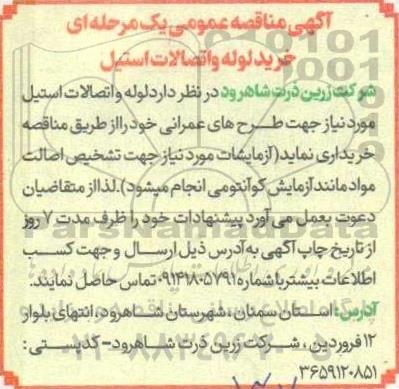 آگهی مناقصه عمومی یک مرحله ای
خرید لوله و اتصالات استیل
شرکت زرین ذرت شاهرود در نظر دارد لوله و اتصالات استیل
مورد نیاز جهت طرح های عمرانی خود را از طریق مناقصه
خریداری نماید (آزمایشات مورد نیاز جهت تشخیص اصالت
مواد مانند آزمایش کوآنتومی انجام میشود). لذا از متقاضیان
دعوت بعمل می آورد پیشنهادات خود را ظرف مدت ۷ روز
از تاریخ چاپ آگهی به آدرس ذیل ارسال و جهت کسب
اطلاعات بیشتر با شماره ۰۹۱۴۱۸۰۵۷۹۱ تماس حاصل نمایند.
آدرس: استان سمنان، شهرستان شاهرود، انتهای بلوار
۱۲ فروردین، شرکت زرین ذرت شاهرود- کدپستی:
۳۶۵۹۱۲۰۸۵۱